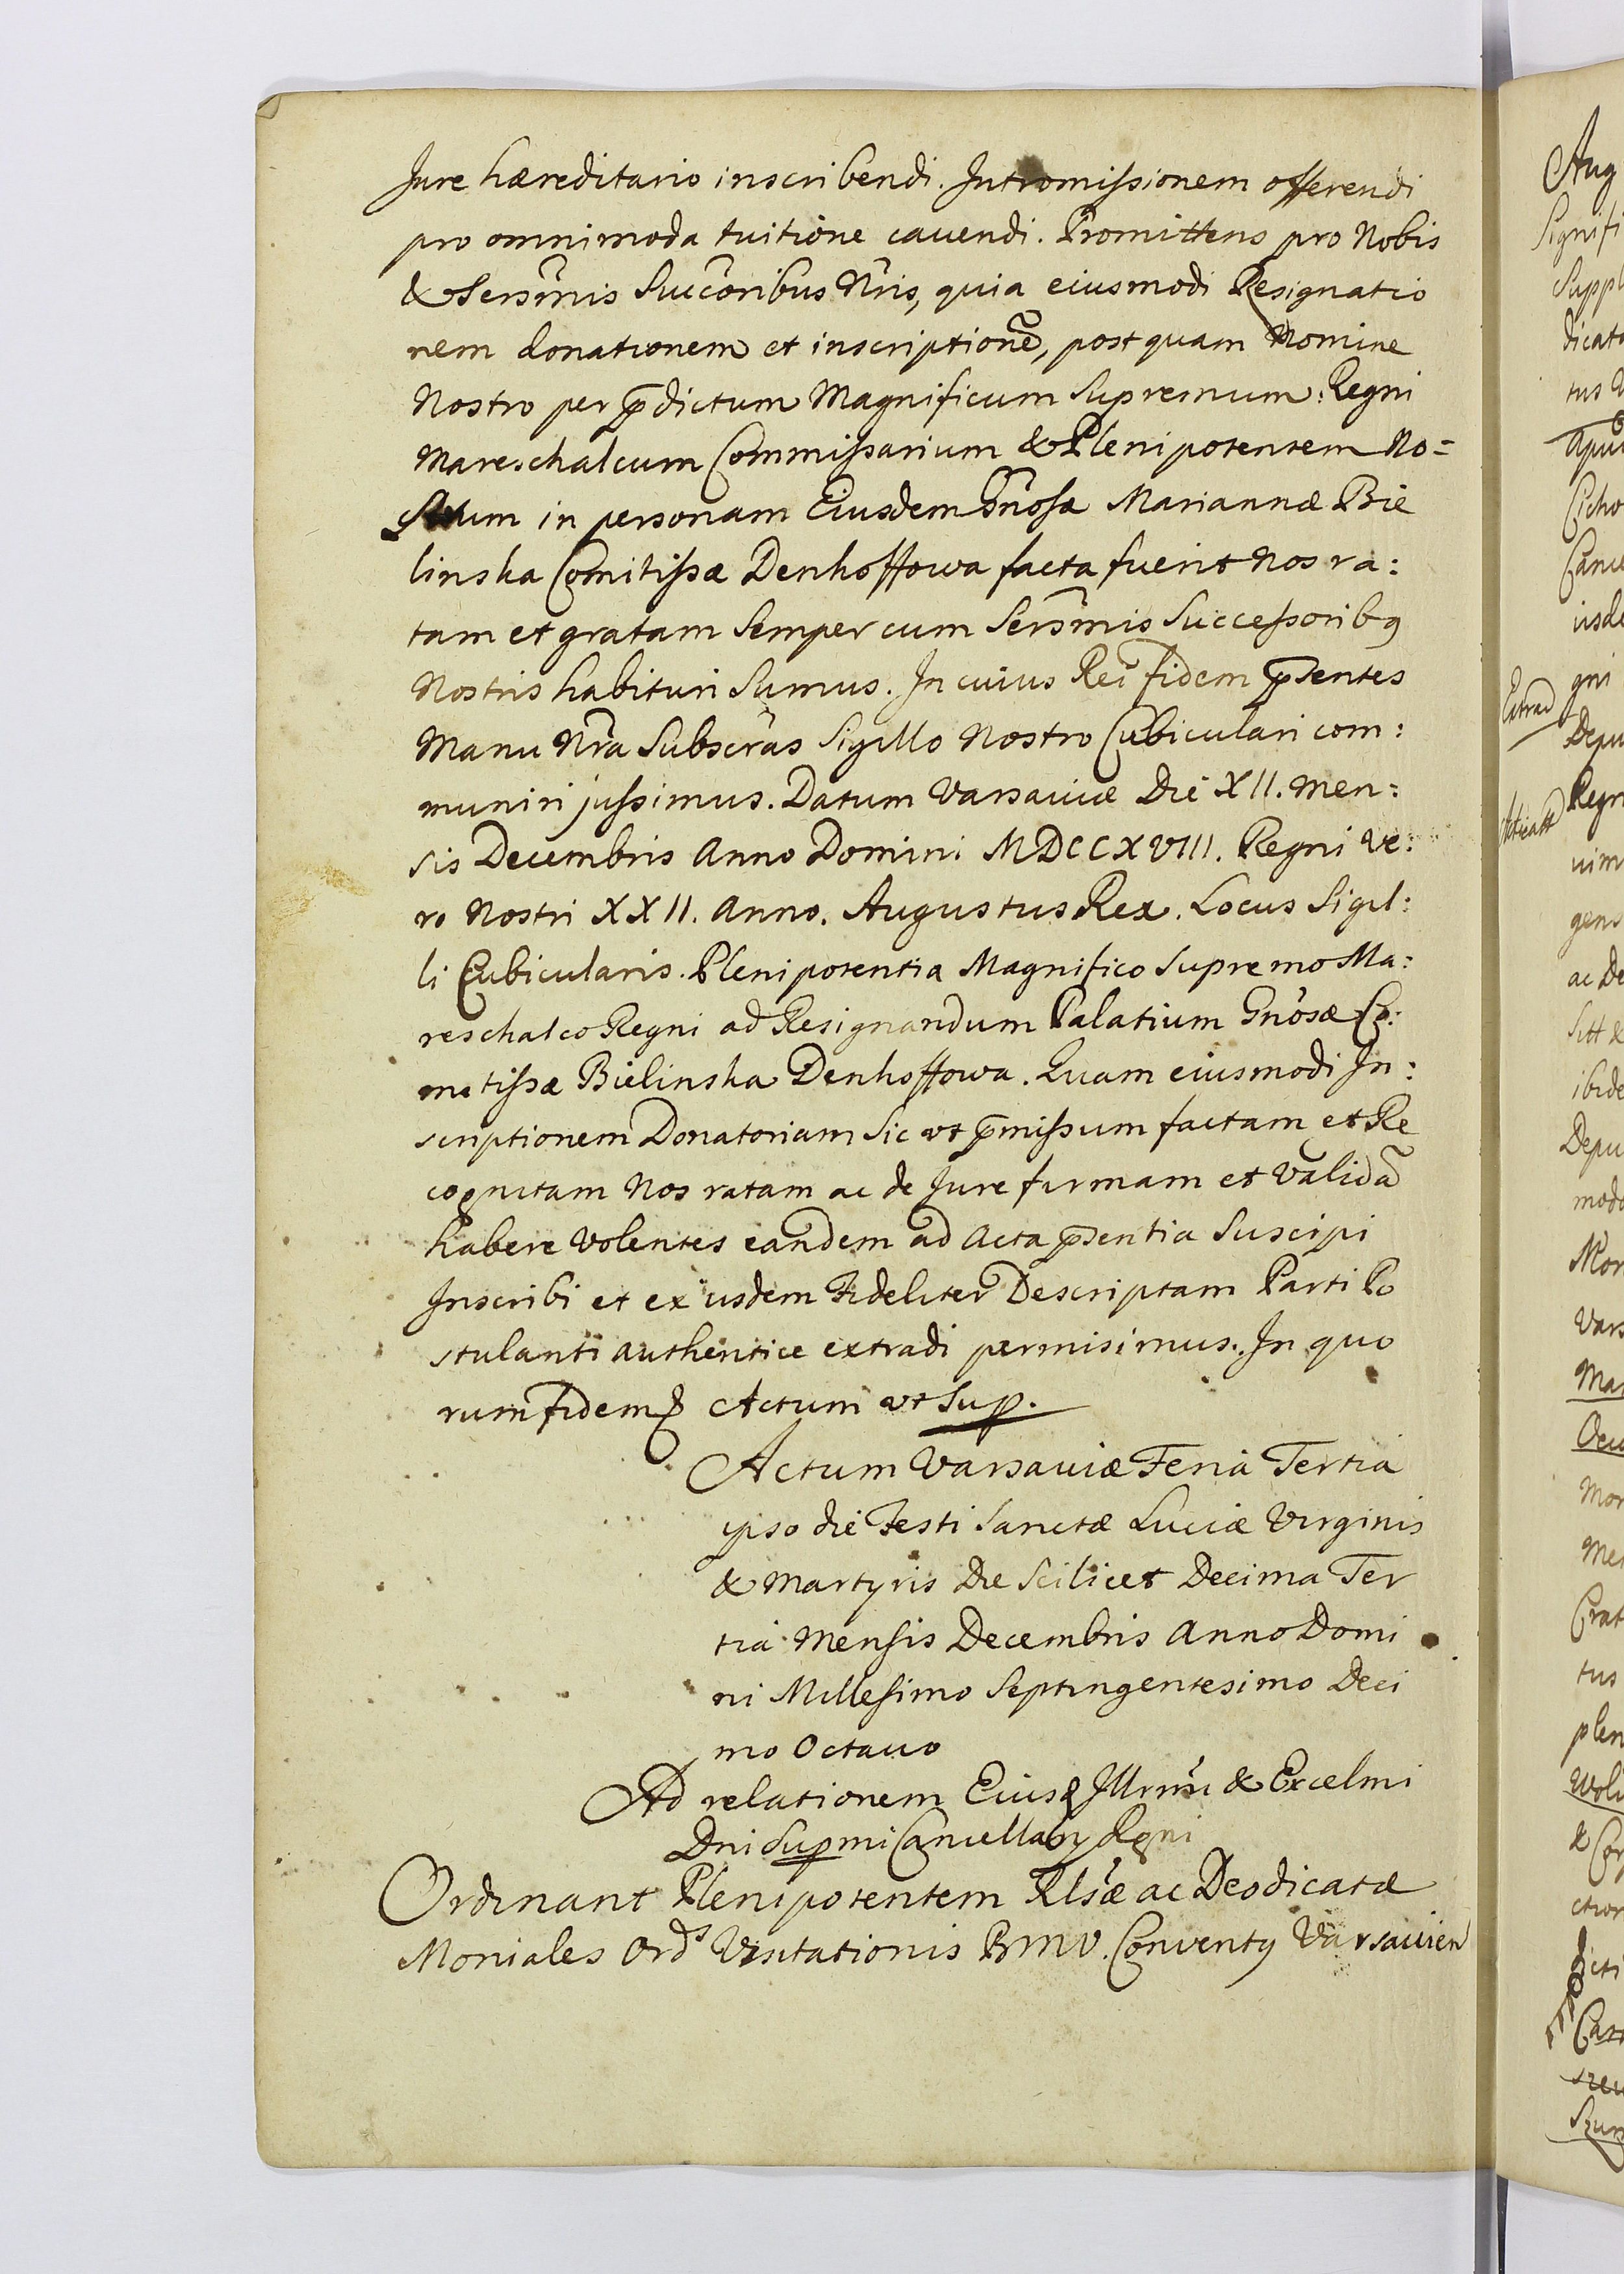 Jure hæreditario inscribendi. Intromissionem offerendi
pro omnimoda tuitione cauendi. Promittens pro Nobis
& Sersm̃is Succõribus Nr̃is, quia eiusmodi Resignatio
nem donationem et inscriptionẽ, post quam Nomine
Nostro per p̃dictum Magnificum Supremum: Regni
Mareschalcum Commissarium & Plenipotentem No=
strum in personam Eiusdem Gñosæ Mariannæ Bie
linska Comitissæ Denhoffowa facta fuerit Nos ra:
tam et gratam Semper cum Sersm̃is Successoribq
Nostris habituri Sumus. In cuius Rei fidem p̃sentes
Manu Nr̃a Subscr̃as Sigillo Nostro Cubiculari com:
muniri jussimus. Datum Varsauiæ Die XII. Men:
sis Decembris Anno Domini MDCCXVIII. Regni Ve:
ro Nostri XXII. Anno. Augustus Rex. Locus Sigil:
li Cubicularis. Plenipotentia Magnifico Supremo Ma:
reschalco Regni ad Resignandum Palatium Gñosæ Co:
mitissæ Bielinska Denhoffowa. Quam eiusmodi In:
scriptionem Donatoriam Sic ut p̃missum factam et Re
cognitam Nos ratam ac de Jure firmam et Validã
habere Volentes eandem ad Acta p̃sentia Suscipi
Inscribi et ex iisdem Fideliter Descriptam Parti Po
stulanti authentice extradi permisimus. In quo
rum fidem Actum ut Sup.
Actum Varsauiæ Feria Tertia
ipso die Festi Sanctæ Luciæ Virginis
& Martyris Die Scilicet Decima Ter
tia Mensis Decembris Anno Domi
ni Millesimo Septingentesimo Deci
mo Octauo
Ad relationem Eiusd Illrm̃i & Excelmi
Dni Supmi Cancellarij Rgni
Ordinant Plenipotentem Rlsæ ac Deodicatæ
Moniales Ords Visitationis BMV. Conventq Varsauien
Aug
Signifi
Suppl
dicat
tus
apud
Cicho
Cance
iisde
gni
Extrad
Depu
Regn
uim
gens
ac De
Sitt &
ibide
Depu
modo
Mon
Vars
Mar
Mon
Crat
tus
plen
Woli
& Con
ction
dicti